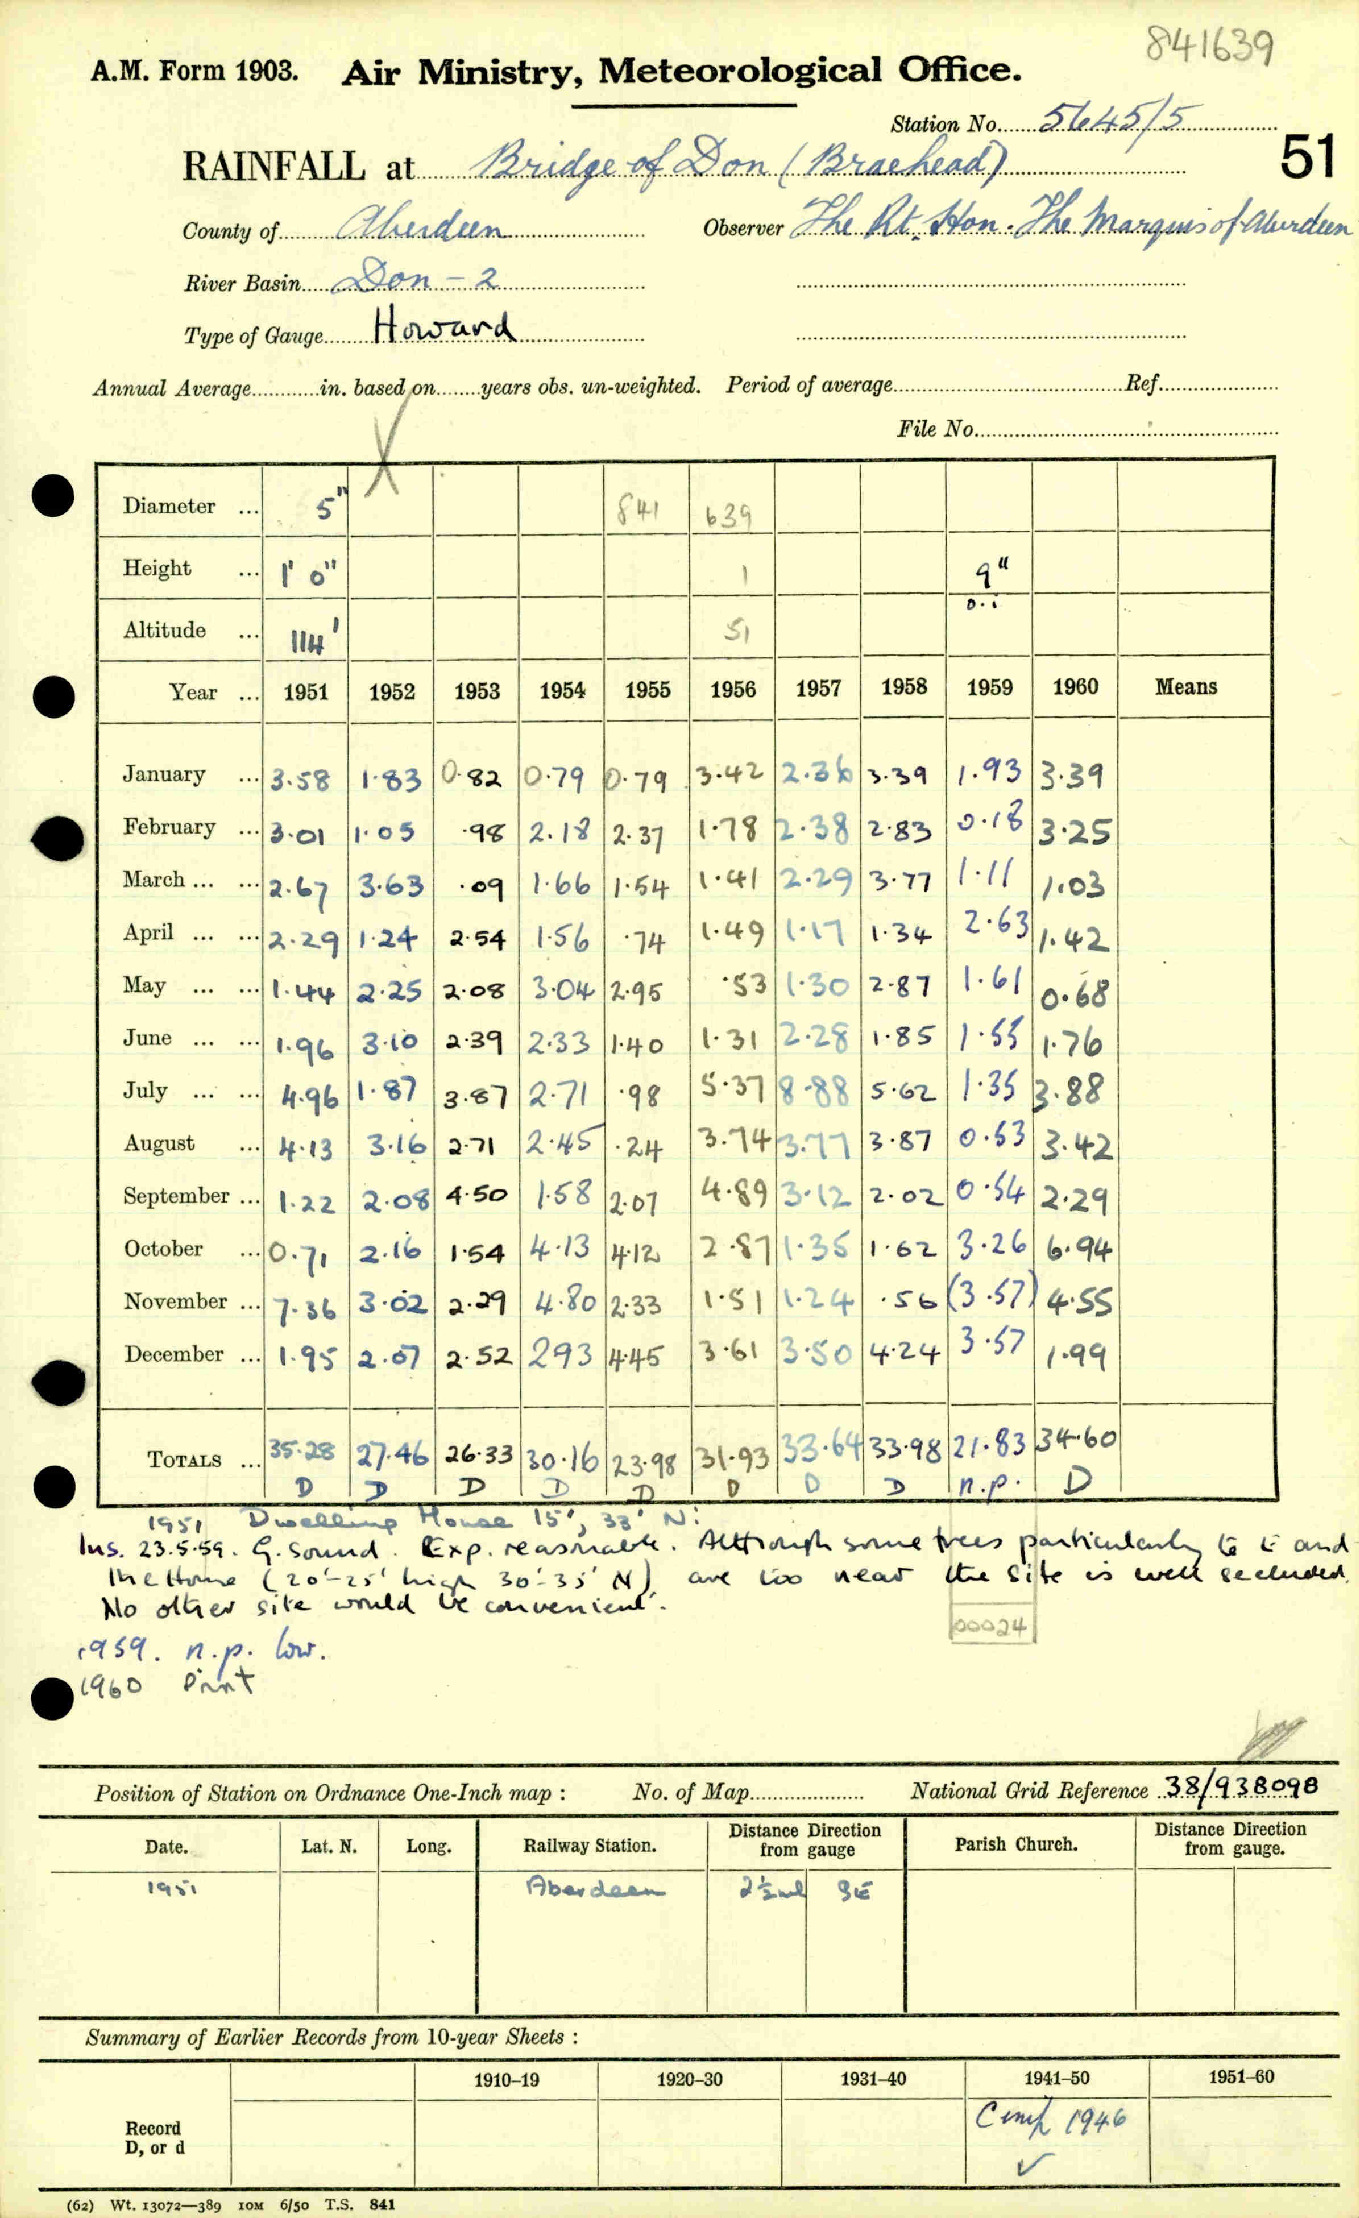 841639
A.M. Form 1903. Air Ministry, Meteorological Office.
Station No. 5645/5
51
RAINFALL at Bridge of Don (Braehead)
County of Aberdeen Observer The Rt. Hon. The Marquis of Aberdeen
River Basin Don - 2
Type of Gauge Howard
Annual Average in. based on years obs. un-weighted. Period of average Ref.
File No.
Diameter ... 5" 841 639
Height ... 1' 0" 1 9"
0.i
Altitude ... 114' 51
Year ... 1951 1952 1953 1954 1955 1956 1957 1958 1959 1960 Means
January ... 3.58 1.83 0.82 0.79 0.79 3.42 2.36 3.39 1.93 3.39
February ... 3.01 1.05 .98 2.18 2.37 1.78 2.38 2.83 0.18 3.25
March ... ... 2.67 3.63 .09 1.66 1.54 1.41 2.29 3.77 1.11 1.03
April ... ... 2.29 1.24 2.54 1.56 .74 1.49 1.17 1.34 2.63 1.42
May ... ... 1.44 2.25 2.08 3.04 2.95 .53 1.30 2.87 1.61 0.68
June ... ... 1.96 3.10 2.39 2.33 1.40 1.31 2.28 1.85 1.55 1.76
July ... ... 4.96 1.87 3.87 2.71 .98 5.37 8.88 5.62 1.35 3.88
August ... 4.13 3.16 2.71 2.45 .24 3.74 3.77 3.87 0.53 3.42
September ... 1.22 2.08 4.50 1.58 2.07 4.89 3.12 2.02 0.54 2.29
October ... 0.71 2.16 1.54 4.13 4.12 2.87 1.35 1.62 3.26 6.94
November ... 7.36 3.02 2.29 4.80 2.33 1.51 1.24 .56 (3.57) 4.55
December ... 1.95 2.07 2.52 2.93 4.45 3.61 3.50 4.24 3.57 1.99
TOTALS ... 35.28 27.46 26.33 30.16 23.98 31.93 33.64 33.98 21.83 34.60
D D D D D D D D n.p. D
1951 Dwelling House 15', 33' N:
Ins. 23.5.59. G. sound. Exp. reasonable. Although some trees particularly to E and
the Home (20'-25' high 30'-35' N) are too near the site is well secluded.
No other site would be convenient.
00024
1959. n.p. low.
1960 Print
Position of Station on Ordnance One-Inch map : No. of Map National Grid Reference 38/938098
Date. Lat. N. Long. Railway Station. Distance from gauge Direction Parish Church. Distance from gauge. Direction
1951 Aberdeen 2½ml SE
Summary of Earlier Records from 10-year Sheets :
1910–19 1920–30 1931–40 1941–50 1951–60
Record
D, or d
1946
✓
(62) Wt. 13072—389 10M 6/50 T.S. 841